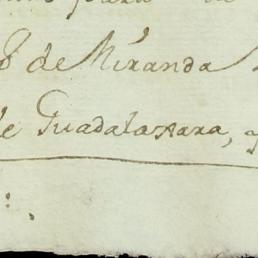 para
de Miranda
de Guadalaxara, y